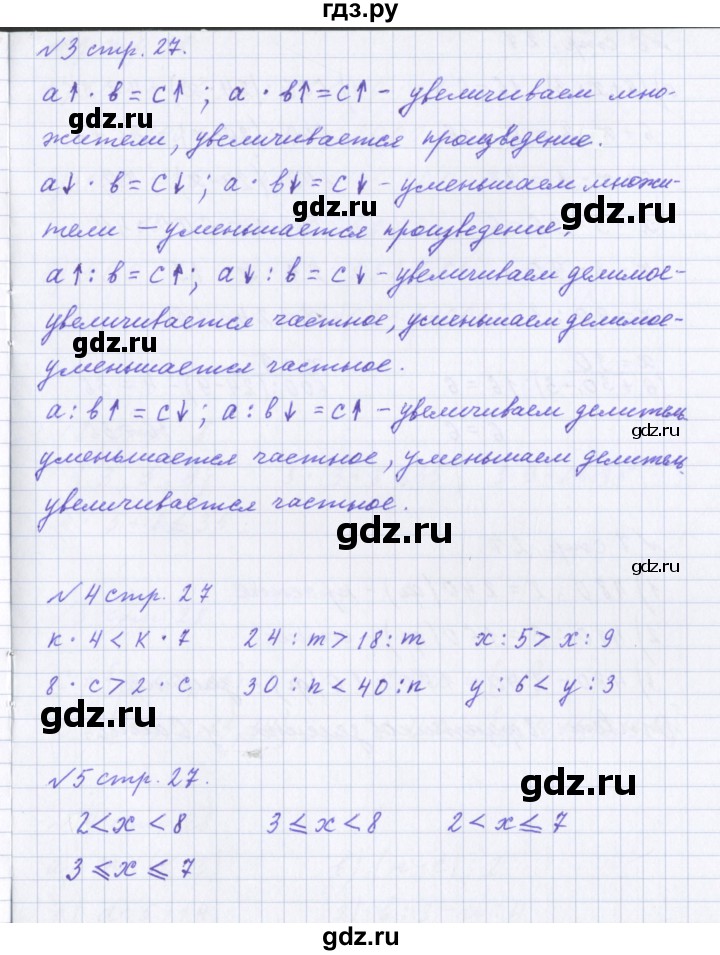 гдз.ру
№3 стр. 27.
a↑ · b = c↑ ; a · b↑ = c↑ - увеличиваем мно-
gdz.ru
жители, увеличивается произведение.
a↓ · b = c↓ ; a · b↓ = c↓ - уменьшаем множи-
gdz.ru
gdz.ru
тели — уменьшается произведение,
a↑ : b = c↑ ; a↓ : b = c↓ - увеличиваем делимое-
увеличивается частное, уменьшаем делимое-
gdz.ru
уменьшается частное.
a : b↑ = c↓ ; a : b↓ = c↑ - увеличиваем делитель
gdz.ru
уменьшается частное, уменьшаем делитель
увеличивается частное.
gdz.ru
gdz.ru
№4 стр. 27
к · 4 < к · 7 24 : m > 18 : m x : 5 > x : 9
8 · c > 2 · c 30 : n < 40 : n y : 6 < y : 3
gdz.ru
№5 стр. 27.
gdz.ru
2 < x < 8 3 ⩽ x < 8 2 < x ⩽ 7
3 ⩽ x ⩽ 7
gdz.ru
gdz.ru